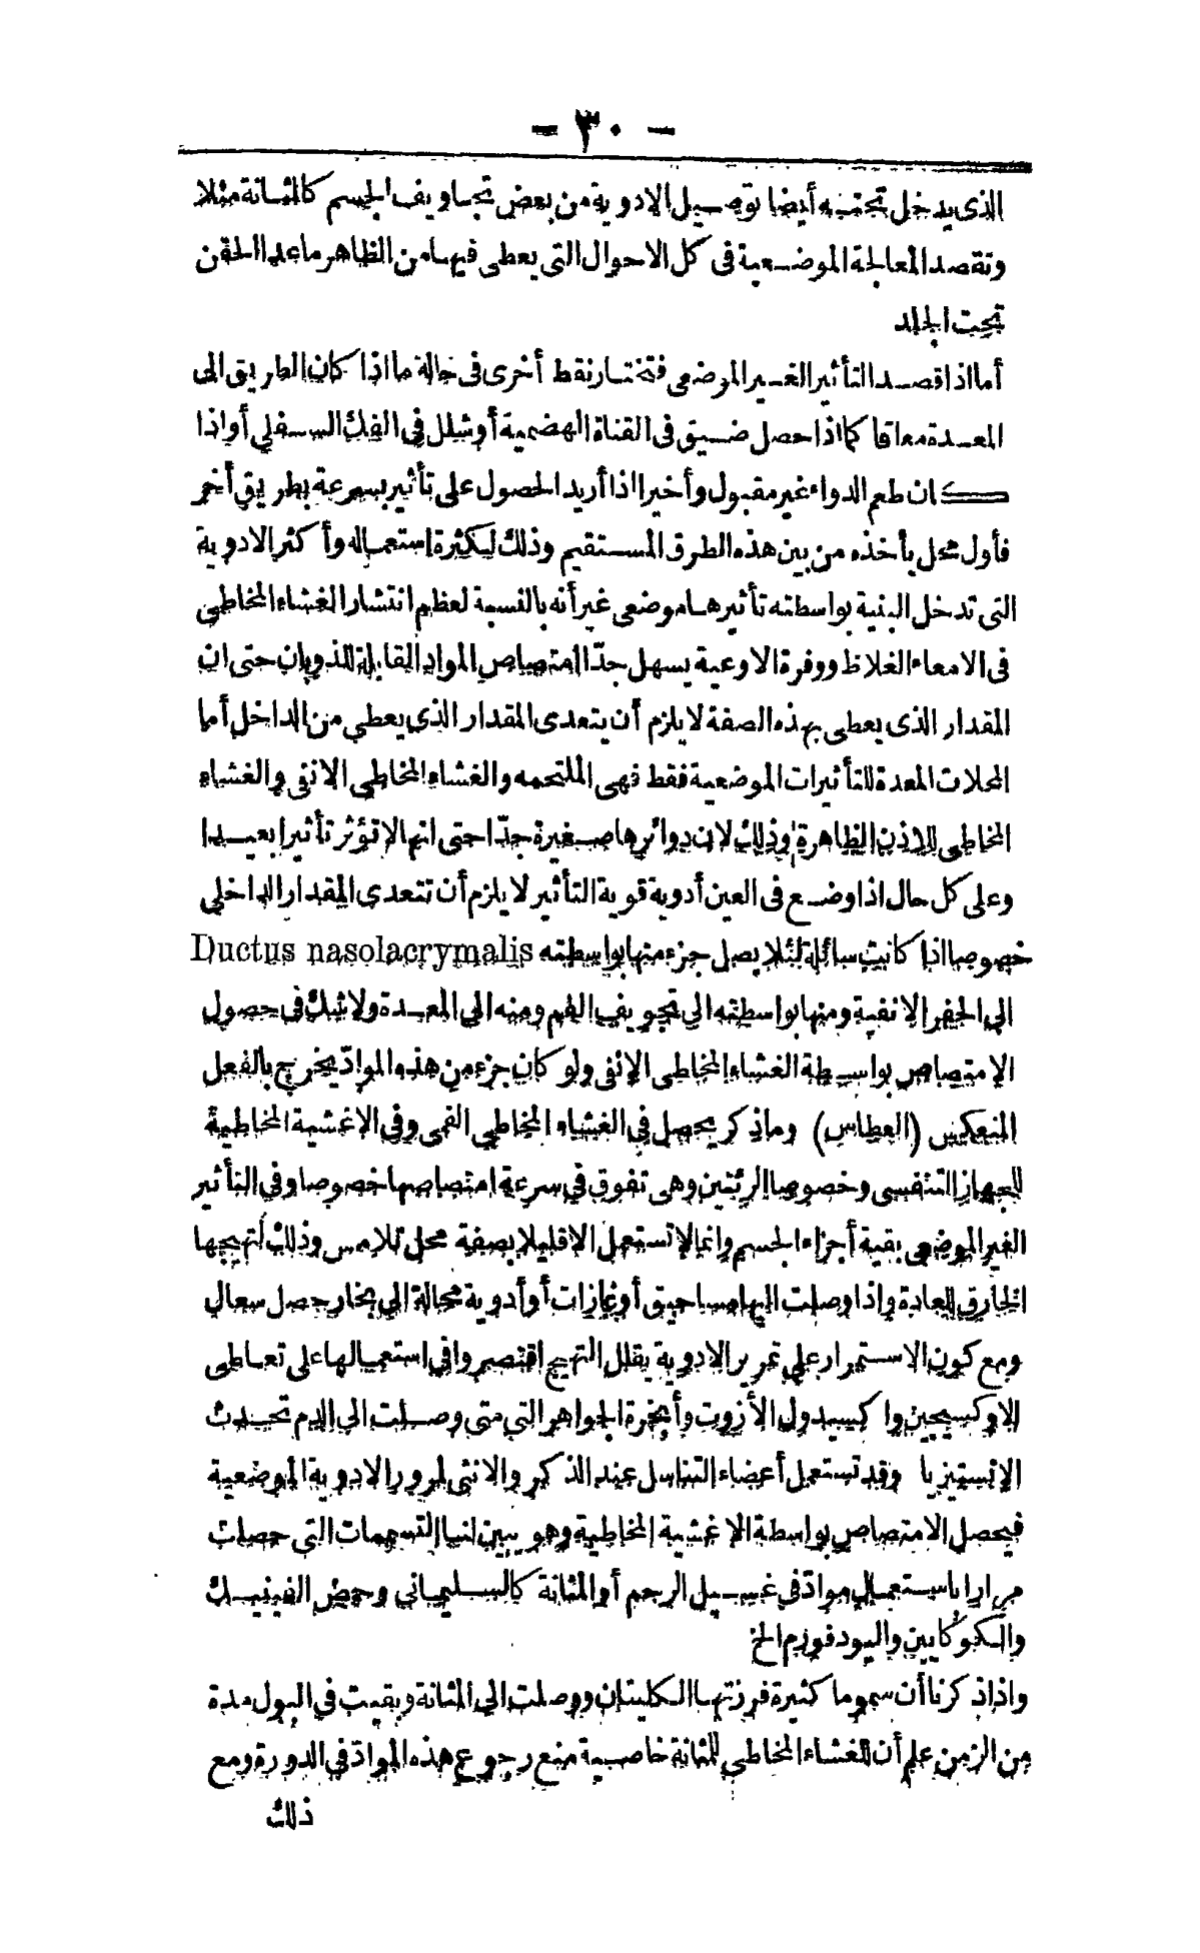 - ٣٠ -
الذى يدخل تحتنه أيضا توصيل الادوية من بعض تجاويف الجسم كالمثانة مثلا
وتقصد المعالجة الموضعية فى كل الاحوال التى يعطى فيها من الظاهر ماعدا الحقن
تحت الجلد
أما اذا قصد التأثير الغير الموضعى فتختار نقط أخرى فى حالة ما اذا كان الطريق الى
المعدة معاقا كما اذا حصل ضيق فى القناة الهضمية أو شلل فى الفك السفلى أو اذا
كان طعم الدواء غير مقبول وأخيرا اذا أريد الحصول على تأثير بسرعة بطريق أخر
فأول محل يأخذه من بين هذه الطرق المستقيم وذلك لكثرة استعماله وأكثر الادوية
التى تدخل البنية بواسطته تأثيرها موضعى غير أنه بالنسبة لعظم انتشار الغشاء المخاطى
فى الامعاء الغلاظ ووفرة الاوعية يسهل جدّا امتصاص المواد القابلة للذوبان حتى ان
المقدار الذى يعطى بهذه الصفة لا يلزم أن يتعدى المقدار الذى يعطى من الداخل أما
المحلات المعدة للتأثيرات الموضعية فقط فهى الملتحمه والغشاء المخاطى الانفى والغشاء
المخاطى للاذن الظاهرة وذلك لان دوائرها صغيرة جدّا حتى انها لا تؤثر تأثيرا بعيدا
وعلى كل حال اذا وضع فى العين أدوية قوية التأثير لا يلزم أن تتعدى المقدار الداخلى
خصوصا اذا كانت سائلة لئلا يصل جزء منها بواسطته Ductus nasolacrymalis
الى الحفر الانفية ومنها بواسطته الى تجويف الفم ومنه الى المعدة ولا شك فى حصول
الامتصاص بواسطة الغشاء المخاطى الانفى ولو كان جزء من هذه الموادّ يخرج بالفعل
المنعكس (العطاس) وماذكر يحصل فى الغشاء المخاطى الفمى وفى الاغشية المخاطية
للجهاز التنفسى وخصوصا الرئتين وهى تفوق فى سرعة امتصاصها خصوصا وفى التأثير
الغير الموضعى بقية أجزاء الجسم وانما لا تستعمل الا قليلا بصفة محل تلامس وذلك لتهيجها
الخارق للعادة واذا وصلت اليها مساحيق أو غازات أو أدوية محالة الى بخار حصل سعال
ومع كون الاستمرار على تمرير الادوية يقلل التهيج اقتصروا فى استعمالها على تعاطى
الاوكسيجين واكسيدول الأزوت وأبخرة الجواهر التى متى وصلت الى الدم تحدث
الانستيزيا وقد تستعمل أعضاء التناسل عند الذكر والانثى لمرور الادوية الموضعية
فيحصل الامتصاص بواسطة الاغشية المخاطية وهو يبين لنا التسممات التى حصلت
مرارا باستعمال موادّ فى غسيل الرحم أو المثانة كالسليمانى وحمض الفينيك
والكوكايين واليودفورم الخ
واذا ذكرنا أن سموما كثيرة فرزتها الكليتان ووصلت الى المثانة وبقيت فى البول مدة
من الزمن علم أن للغشاء المخاطى للمثانة خاصية منع رجوع هذه الموادّ فى الدورة ومع
ذلك